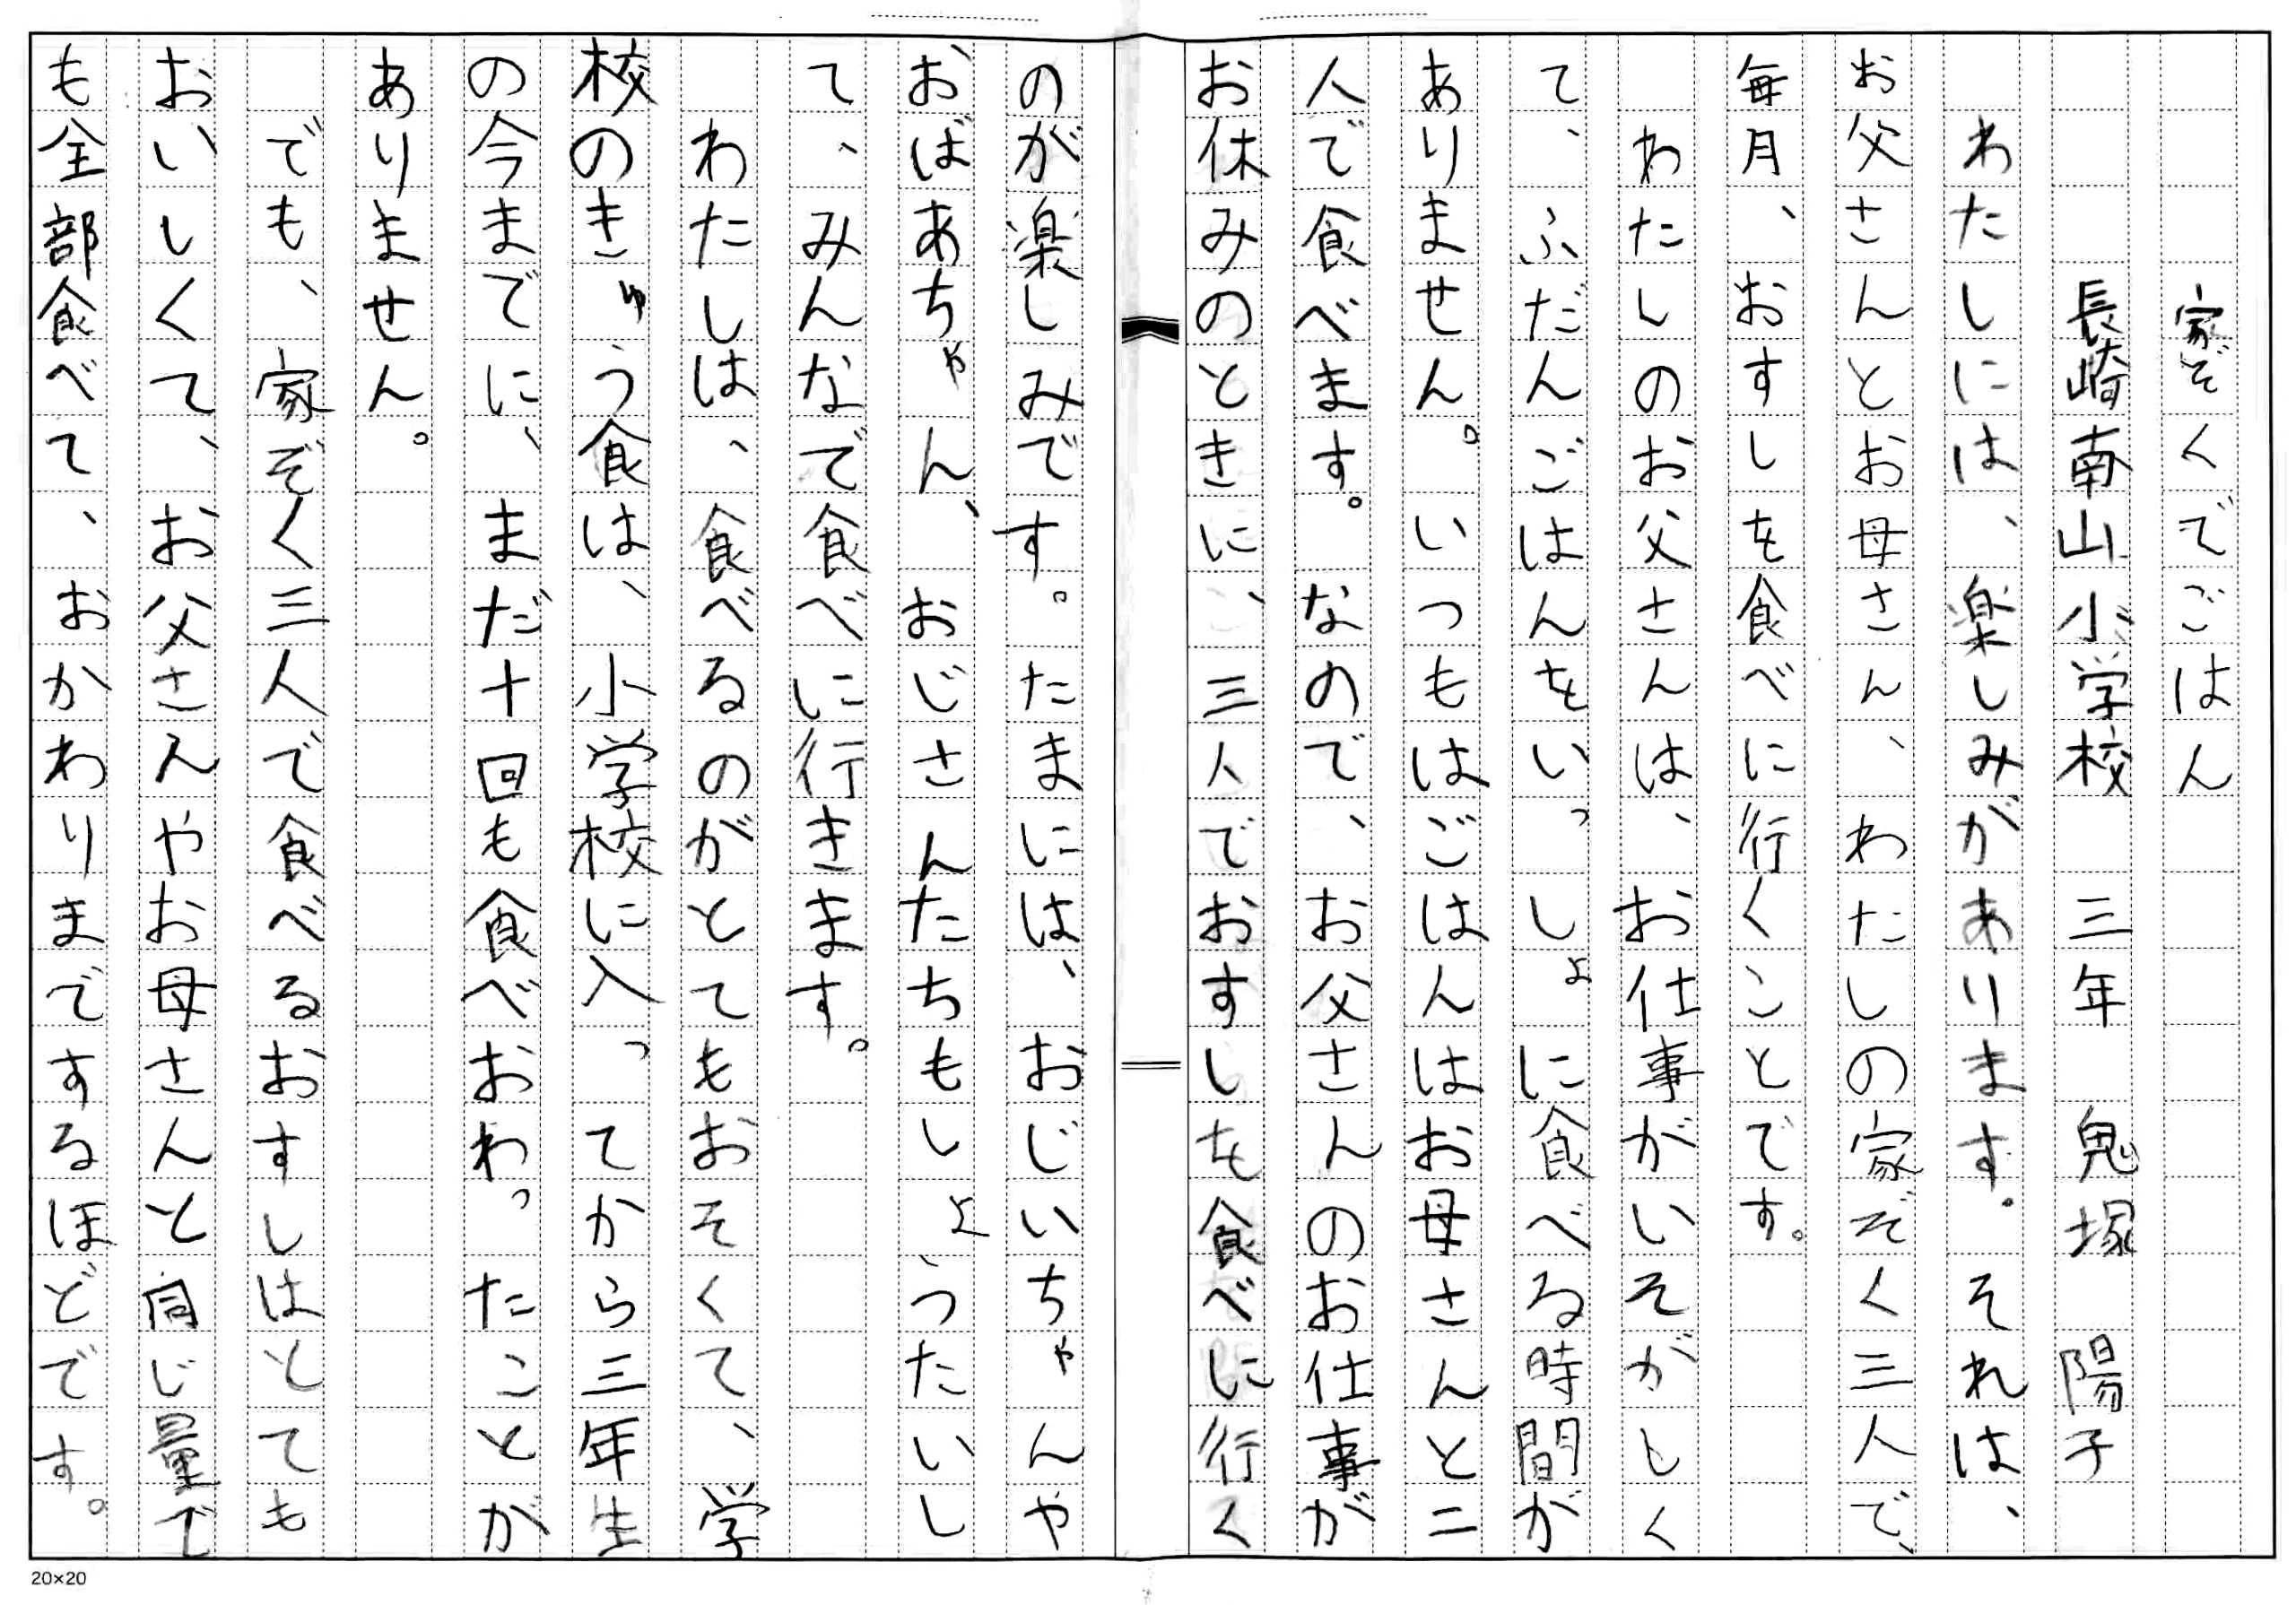 家ぞくでごはん
長崎南山小学校　三年　鬼塚　陽子
わたしには、楽しみがあります。それは、
お父さんとお母さん、わたしの家ぞく三人で、
毎月、おすしを食べに行くことです。
わたしのお父さんは、お仕事がいそがしく
て、ふだんごはんをいっしょに食べる時間が
ありません。いつもはごはんはお母さんと二
人で食べます。なので、お父さんのお仕事が
お休みのときに、三人でおすしを食べに行く
のが楽しみです。たまには、おじいちゃんや
おばあちゃん、おじさんたちもしょうたいし
て、みんなで食べに行きます。
わたしは、食べるのがとてもおそくて、学
校のきゅう食は、小学校に入ってから三年生
の今までに、まだ十回も食べおわったことが
ありません。
でも、家ぞく三人で食べるおすしはとても
おいしくて、お父さんやお母さんと同じ量で
も全部食べて、おかわりまでするほどです。
20×20